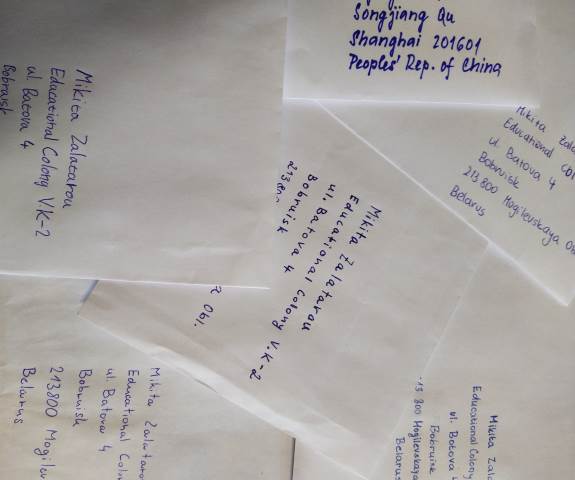 Songjiang Qu
Shanghai 201601
Peoples' Rep. of China
Mikita Zalatarou
Educational Colony V.K-2
ul. Batova 4
Bobruisk
Mikita
Educational
ul. Batova 4
Bobruisk
213 800 Mogilevskaya
Belarus
Mikita Zalatarau
Educational Colony V.K-2
ul. Batova 4
Bobruisk
Obl.
Mikita
Educational
ul. Batova 4
Bobruisk
213800
Belarus
Mikita
Educational Colony
ul. Batova
Bobruisk
800 Mogilevskaya
Belarus